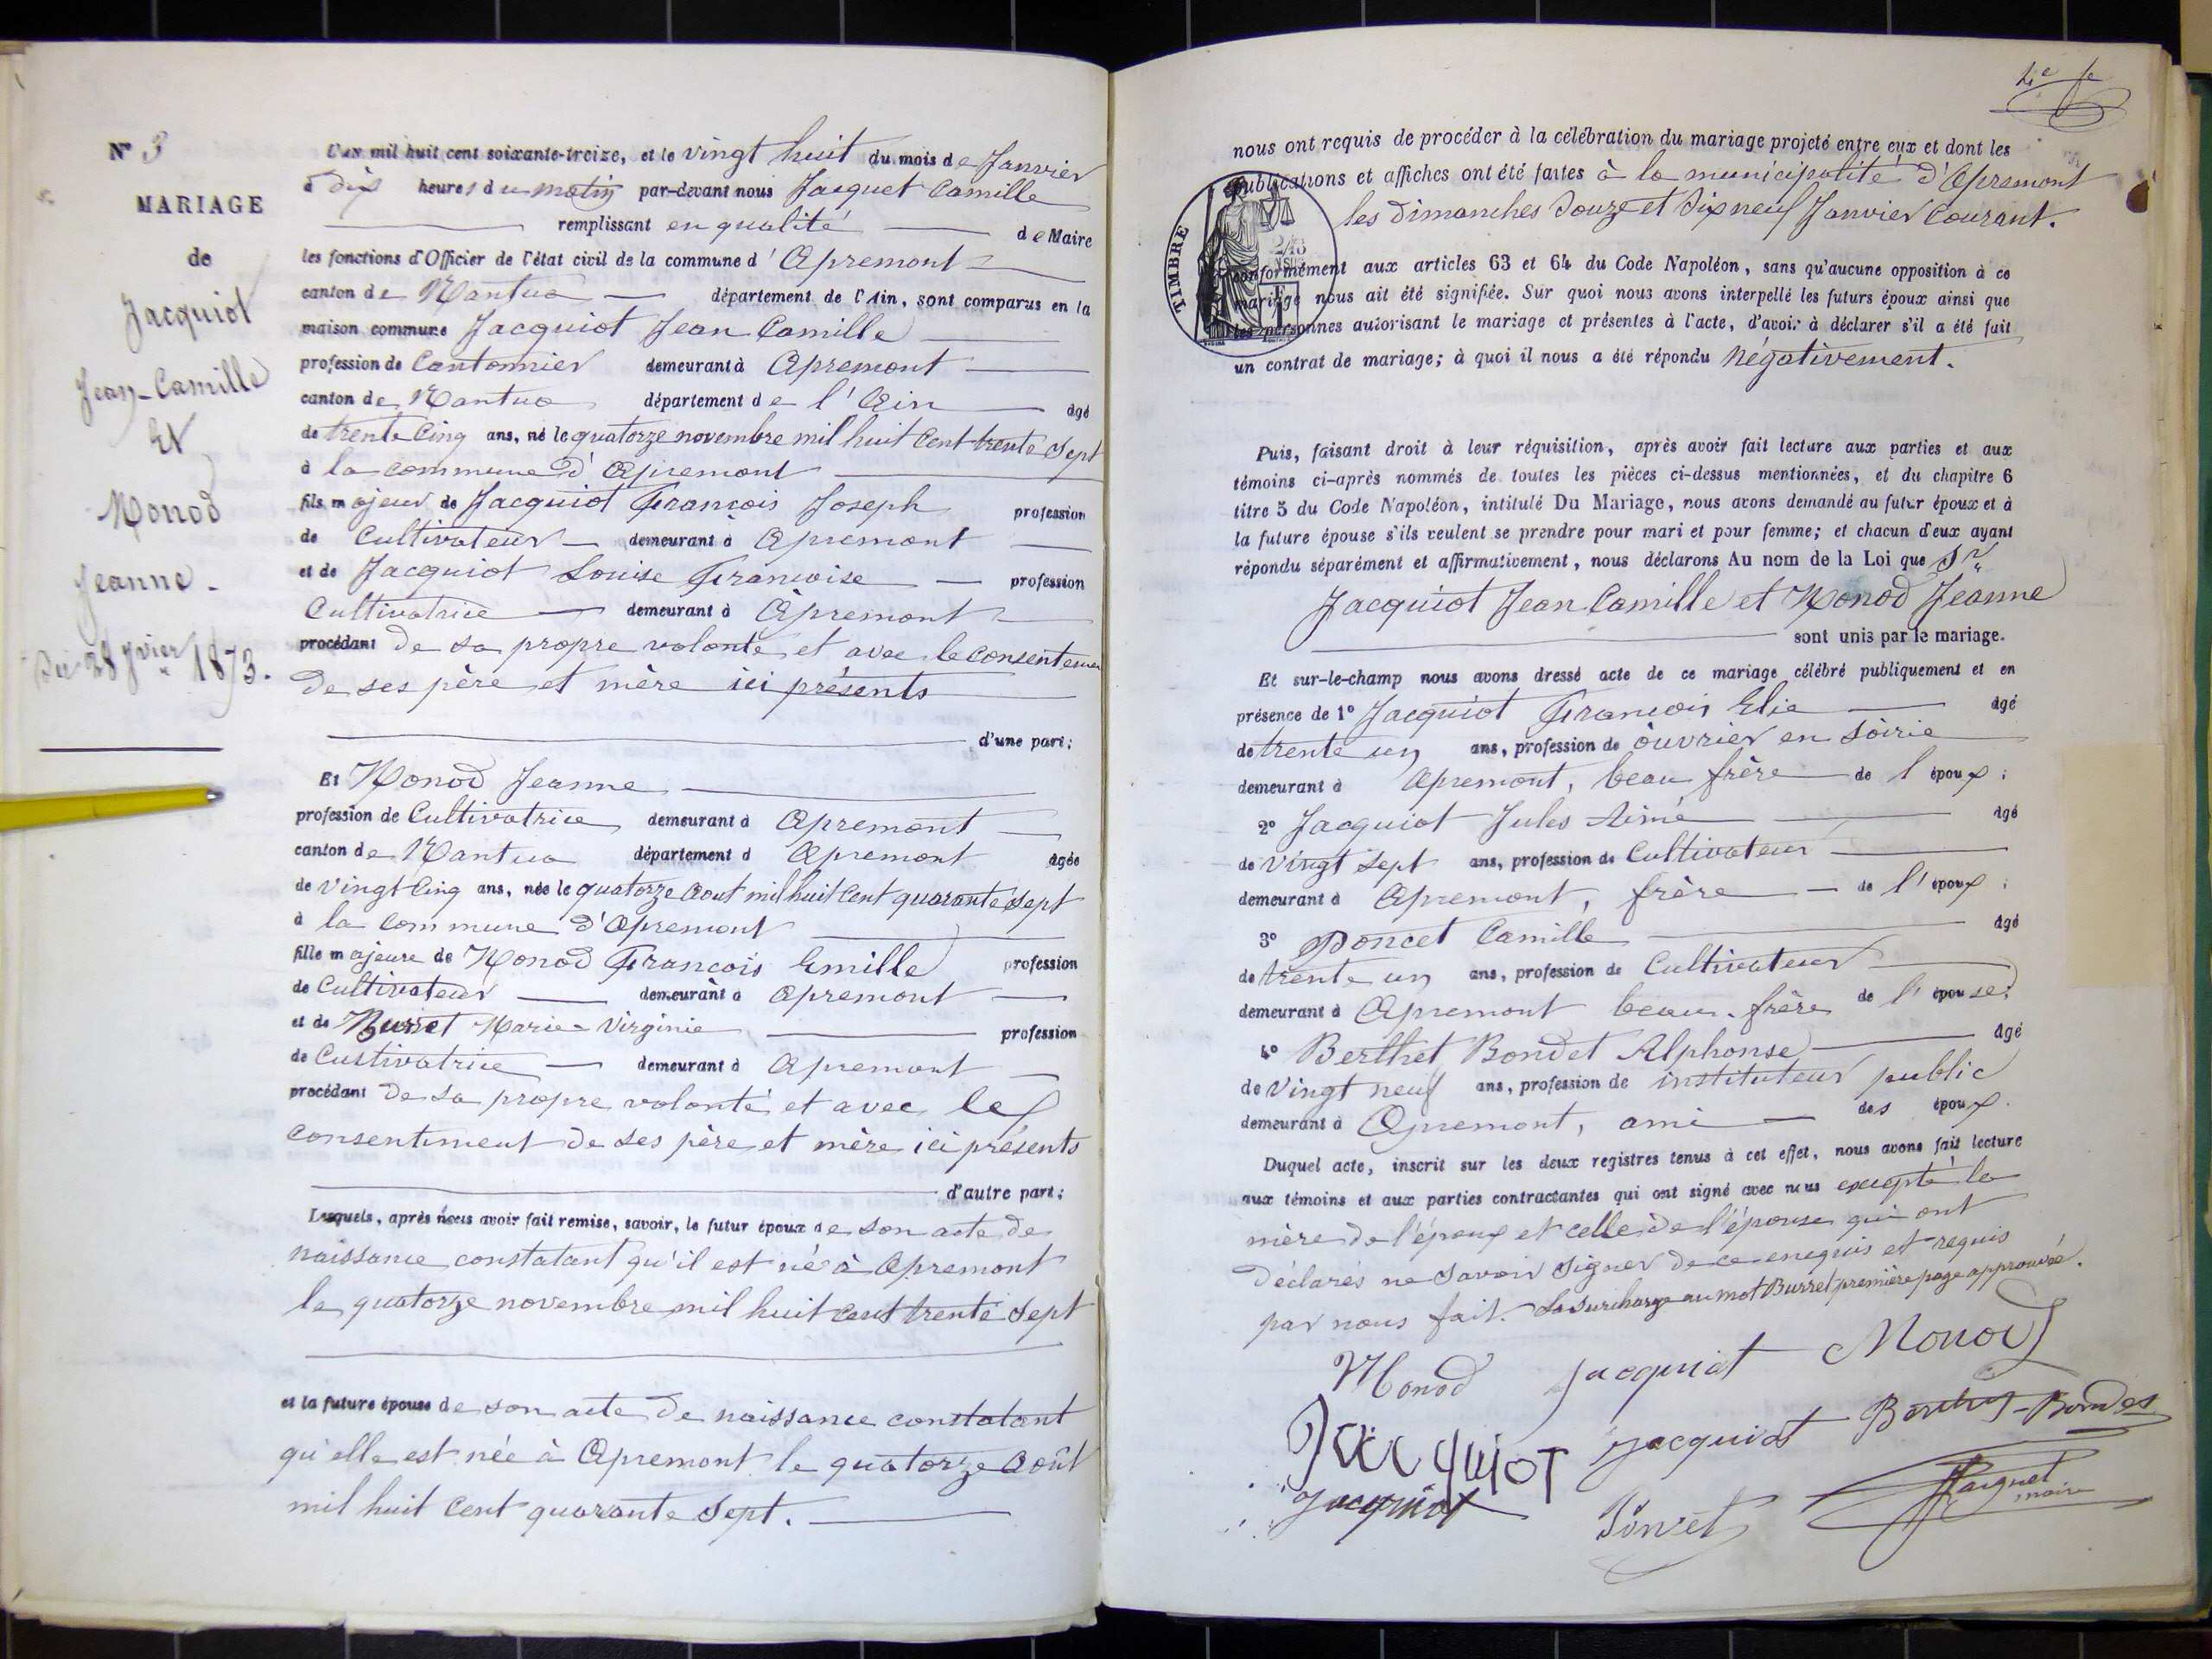 N° 3
MARIAGE
de
Jacquiot
Jean-Camille
Et
Monod
Jeanne -
Du 28 Jvier 1873.
L'an mil huit cent soixante-treize, et le vingt huit du mois de Janvier
à dix heures du matin par-devant nous Jacquet Camille
remplissant en qualité de Maire
les fonctions d'Officier de l'état civil de la commune d'Apremont
canton de Nantua département de l'Ain, sont comparus en la
maison commune Jacquiot Jean Camille
profession de Cantonnier demeurant à Apremont
canton de Nantua département de l'Ain âgé
de trente Cinq ans, né le quatorze novembre mil huit Cent trente Sept
à la commune d'Apremont
fils majeur de Jacquiot François Joseph profession
de Cultivateur demeurant à Apremont
et de Jacquiot Louise Françoise profession
Cultivatrice demeurant à Apremont
procédant de sa propre volonté et avec le Consentement
de ses père et mère ici présents
d'une part;
Et Monod Jeanne
profession de Cultivatrice demeurant à Apremont
canton de Nantua département d Apremont âgée
de vingt Cinq ans, née le quatorze Aout mil huit Cent quarante Sept
à la commune d'Apremont
fille majeure de Monod François Emille profession
de Cultivateur demeurant à Apremont
et de Burret Marie-Virginie profession
de Custivatrice demeurant à Apremont
procédant de sa propre volonté et avec le
consentiment de ses père et mère ici présents
d'autre part;
Lesquels, après nous avoir fait remise, savoir, le futur époux de son acte de
naissance constatant qu'il est né à Apremont
le quatorze novembre mil huit cent trente Sept
et la future épouse de son acte de naissance constatant
qu'elle est née à Apremont le quatorze Août
mil huit Cent quarante Sept.
nous ont requis de procéder à la célébration du mariage projeté entre eux et dont les
publications et affiches ont été faites à la municipalité d'Apremont
les dimanches Douze et Dix neuf Janvier Courant.
TIMBRE
conformément aux articles 63 et 64 du Code Napoléon, sans qu'aucune opposition à ce
mariage nous ait été signifiée. Sur quoi nous avons interpellé les futurs époux ainsi que
les personnes autorisant le mariage et présentes à l'acte, d'avoir à déclarer s'il a été fait
un contrat de mariage; à quoi il nous a été répondu Négativement.
Puis, faisant droit à leur réquisition, après avoir fait lecture aux parties et aux
témoins ci-après nommés de toutes les pièces ci-dessus mentionnées, et du chapitre 6
titre 5 du Code Napoléon, intitulé Du Mariage, nous avons demandé au futur époux et à
la future épouse s'ils veulent se prendre pour mari et pour femme; et chacun d'eux ayant
répondu séparément et affirmativement, nous déclarons Au nom de la Loi que Sr
Jacquiot Jean Camille et Monod Jeanne
sont unis par le mariage.
Et sur-le-champ nous avons dressé acte de ce mariage célébré publiquement et en
présence de 1° Jacquiot François Elie âgé
de trente un ans, profession de ouvrier en Soirie
demeurant à Apremont, beau frère de l époux;
2° Jacquiot Jules Aimé âgé
de vingt Sept ans, profession de Cultivateur
demeurant à Apremont, frère de l'époux;
3° Poncet Camille âgé
de trente un ans, profession de Cultivateur
demeurant à Apremont beau-frère de l'épouse;
4° Berthet Bondet Alphonse âgé
de vingt neuf ans, profession de instituteur public
demeurant à Apremont, ami des époux.
Duquel acte, inscrit sur les deux registres tenus à cet effet, nous avons fait lecture
aux témoins et aux parties contractantes qui ont signé avec nous excepté la
mère de l'époux et celle de l'épouse qui ont
déclarés ne savoir signer de ce enequis et requis
par nous fait. La Surcharge au mot Burret première page approuvée.
Monod Jacquiot Monod
Jacquiot Jacquiot Berthet-Bondet
Jacquiot Ponset Jacquet
maire